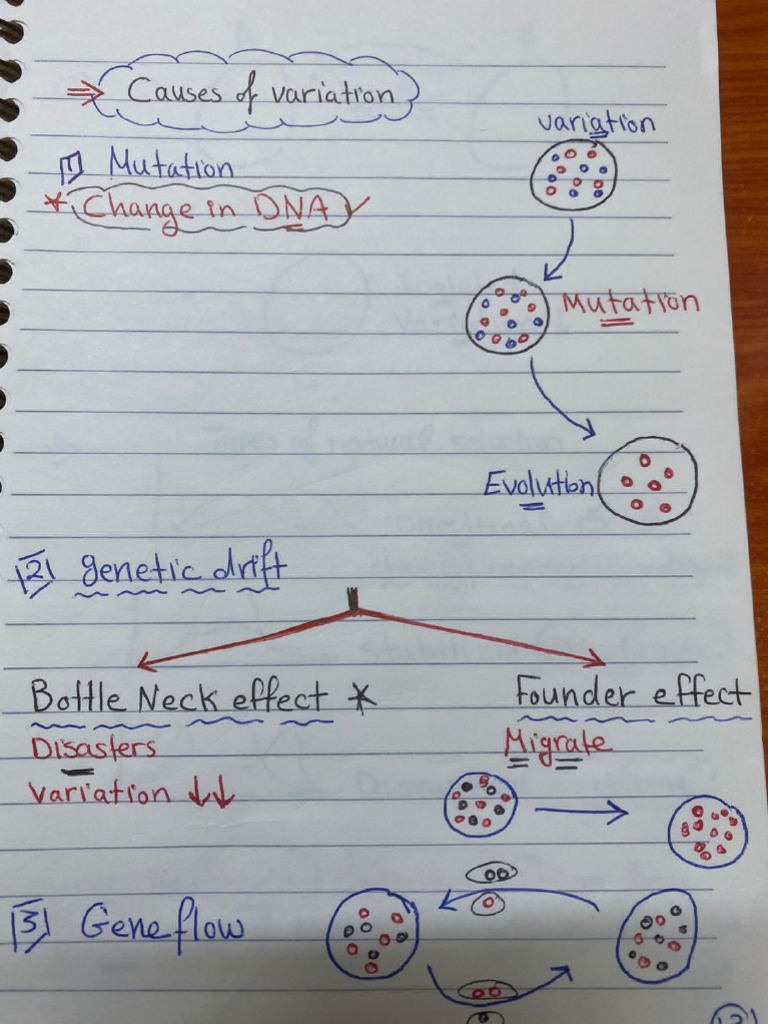 ⇒ Causes of variation
variation
1 Mutation
* Change in DNA ✓
Mutation
Evolution
2 genetic drift
Bottle Neck effect *
Founder effect
Disasters
Migrate
Variation ↓↓
3 Gene flow